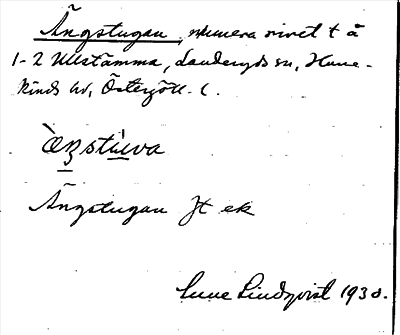 Ängstugan, numera rivet t å
1-2 Ullstämma, Landeryds sn, Hane-
kinds hd, Östergötl. l.
Ängstugan Jt ek
Sune Lindqvist 1930.